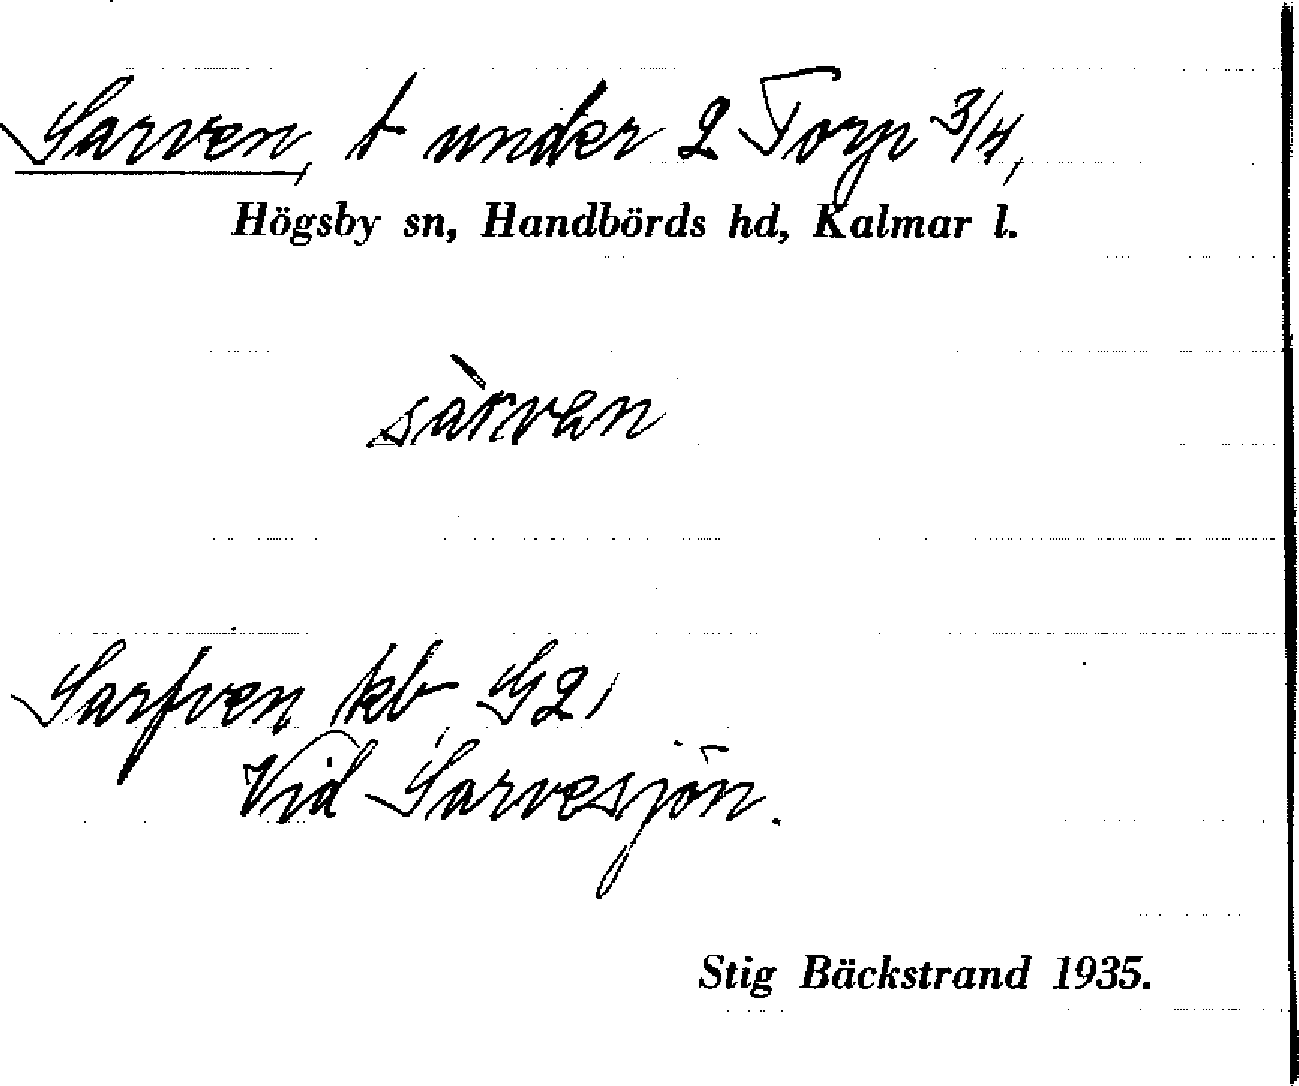 Sarven, t under 2 Torp 3/4,
Högsby sn, Handbörds hd, Kalmar l.
sàrvan
Sarfven kb G2,
Vid Sarvesjön.
Stig Bäckstrand 1935.